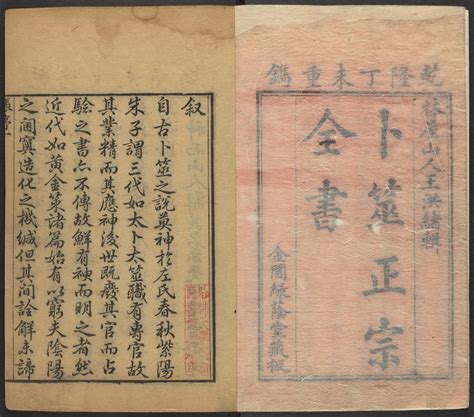 乾隆丁未重鐫
林屋山人王洪緒輯
卜筮正宗
全書
金閶綠蔭堂藏板
叙
自古卜筮之說莫神於左氏春秋紫陽
朱子謂三代如太卜太筮職有專官故
其業精而其應神後世既廢其官而占
驗之書亦不傳故鮮有神而明之者然
近代如黃金策諸篇始有以窮夫陰陽
之閫奧造化之機緘但其間詮解未諦